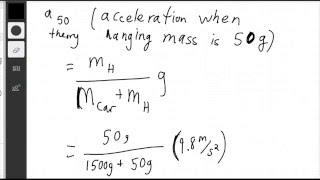 a 50 (acceleration when
theory hanging mass is 50g)
= m_H / (M_car + m_H) g
= 50g / (1500g + 50g) (9.8 m/s²)